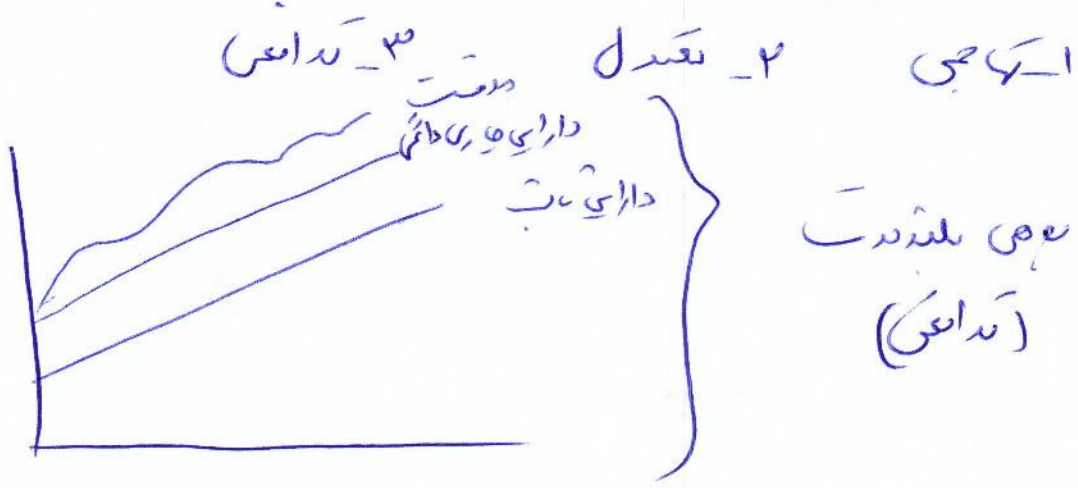 ۱- تهاجمی ۲- تعدیل ۳- تدافعی
موقت
دارایی جاری دائمی
دارایی ثابت
بدهی بلندمدت
(تدافعی)